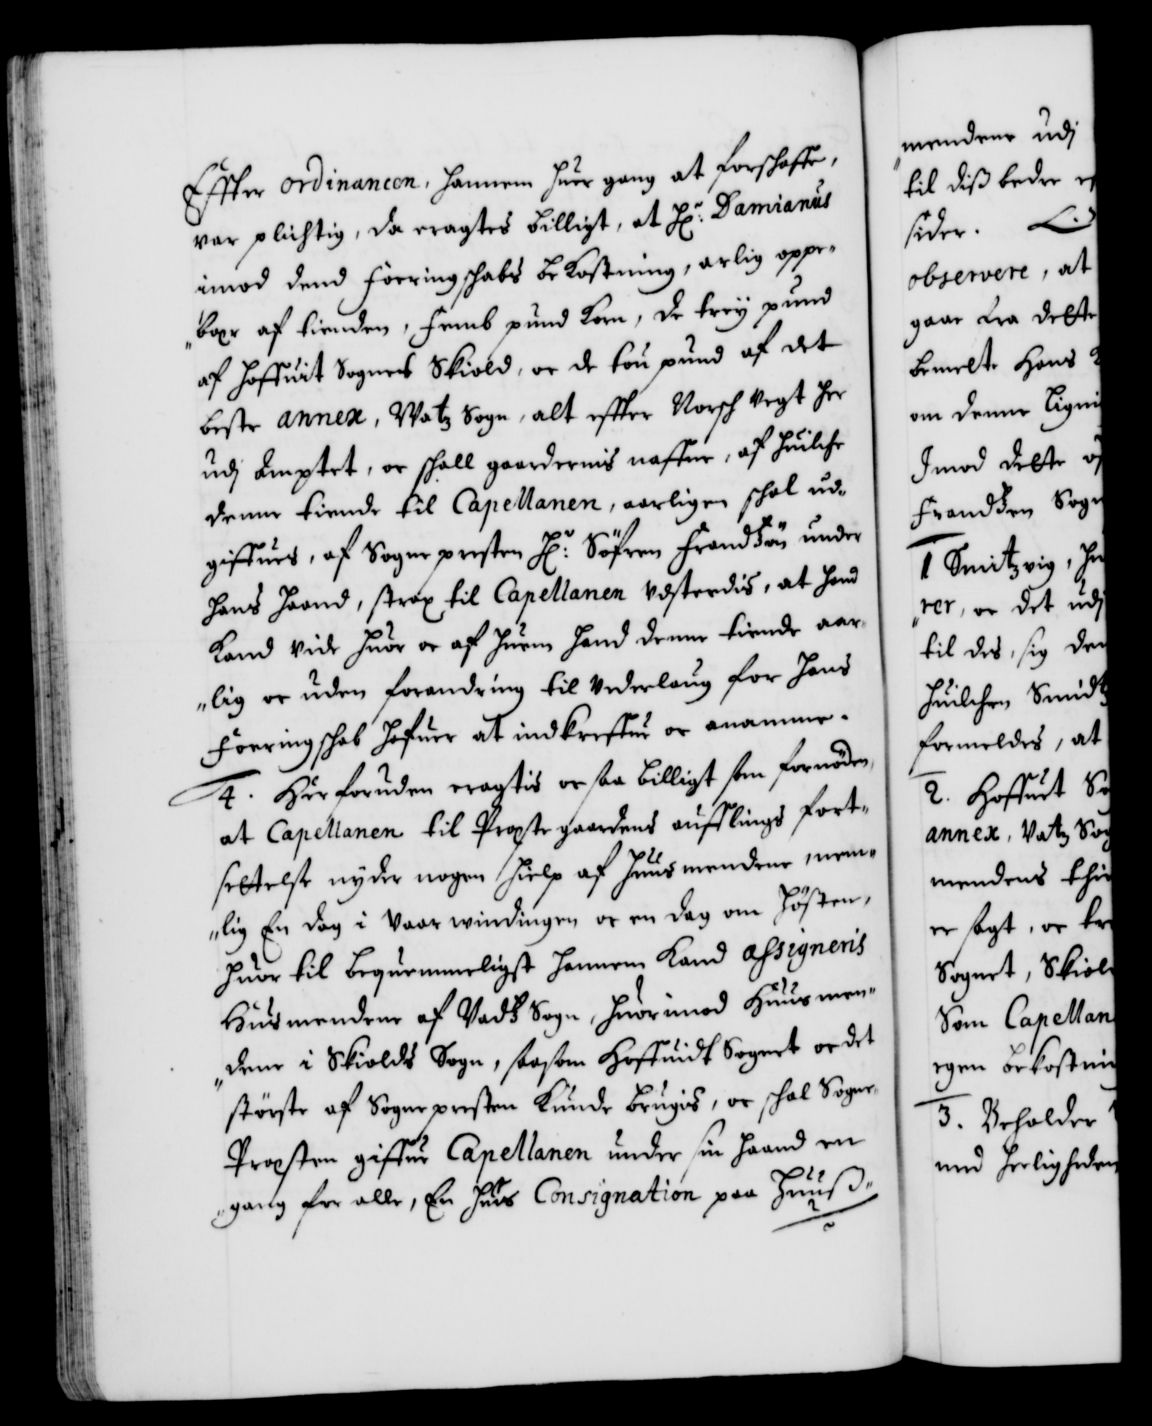 Effter ordinancen, hannem huer gang at forschaffe,
var plichtig, da eragtes billigt, at Hr: Damianus
imod dend foeringschabs bekostning, arlig oppe-
"bær af tienden, femb pund korn, de treÿ pund
af Hoffuit Sognet Skiold, oc de tou pund af det
beste annex, Watz Sogn, alt effter Norsch vegt her
udj Amptet, oc schall gaardernis naffne, af huilche
denne tiende til Capellanen, aarligen schal ud-
giffues, af Sognepresten Hr: Söfren Frandßøn under
hans haand, strax til Capellanen udstædis, at hand
kand vide huor oc af huem hand denne tiende aar-
"lig oc uden forandring til vederlaug for hans
foeringschab hafuer at indkreffue oc anamme.
4. Herforuden eragtis oc saa billigt som fornøden,
at Capellanen til Præstegaardens aufflings fort-
settelse nyder nogen hielp af huusmendene, nem-
"lig En dag i Vaar windingen oc en dag om Høsten,
huor til beqvemmeligst hannem kand assigneris
Husmendene af Vadtz Sogn, huorimod Huusmen-
"dene i Skiolds Sogn, saasom Hoffuidt Sognet oc det
störste af Sognepresten kunde brugis, oc schal Sogne-
Præsten giffue Capellanen under sin haand en
"gang for alle, En huis Consignation paa Huuß-
mendene udj
til diß bedre
sider.
observere, at
gaae fra dette
bemelte Hans
om denne
Imod dette
Frandßen Sogn
1 Smitzvig,
"rer, oc det udj
til des, sig den
huilchen
formeldes, at
2. Hoffuit
annex, Vatz Sog
mendens
er sagt, oc
Sognet, Skiol
Som Capellan
egen bekostni
3. Beholder
med herligheden